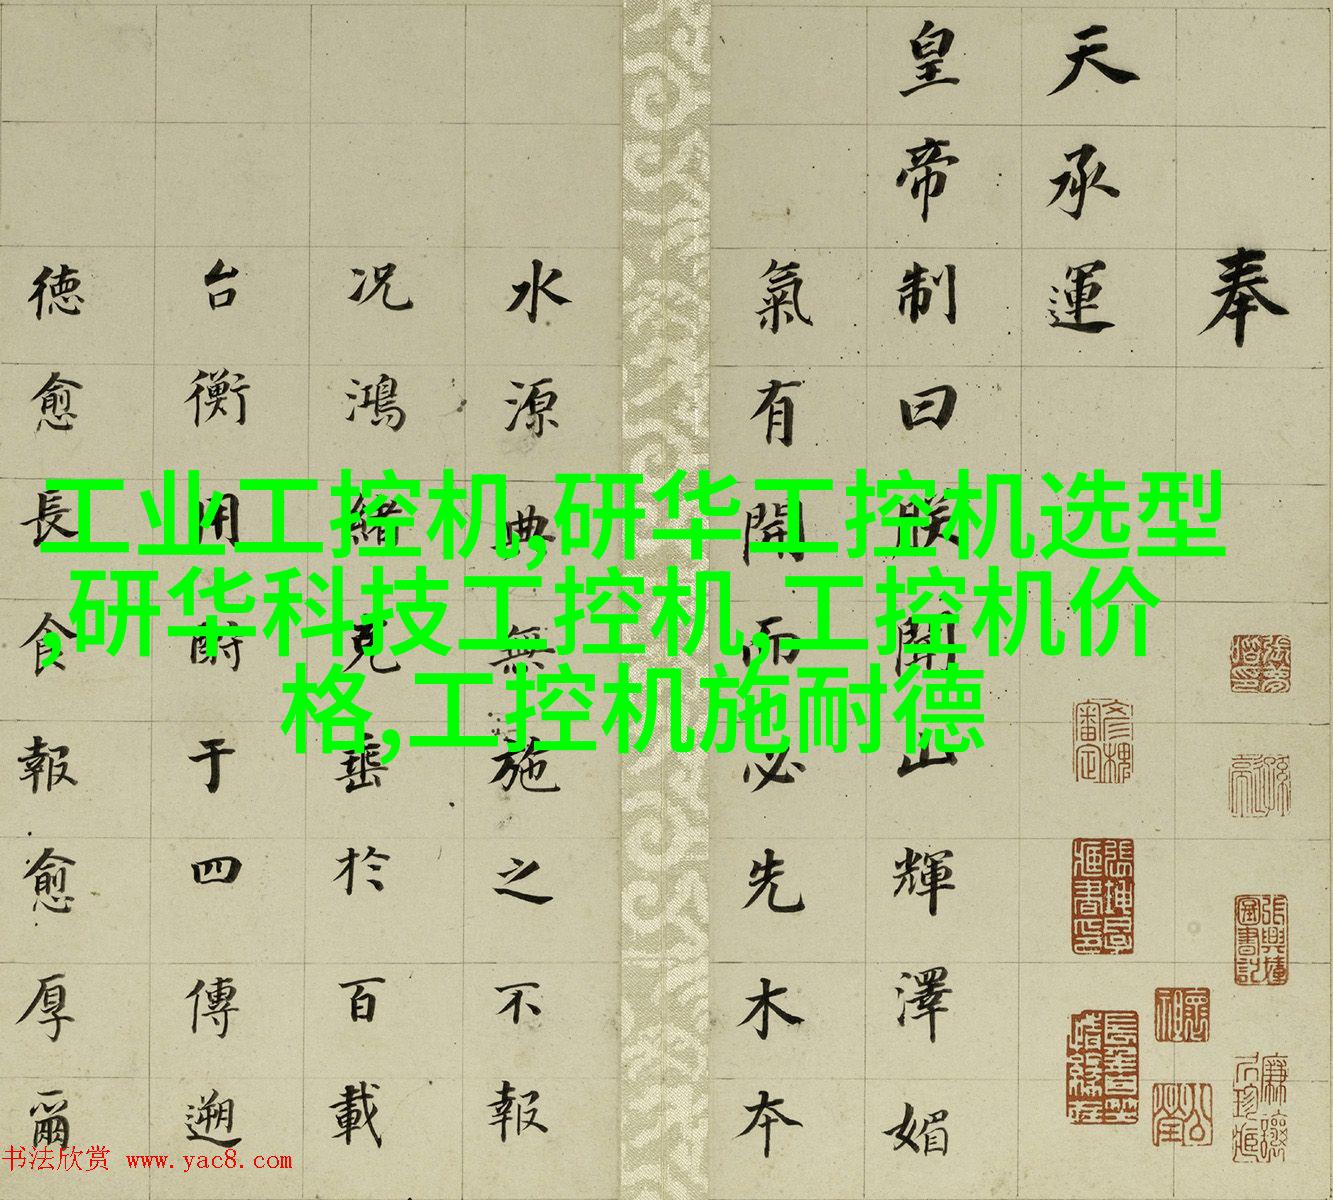 奉
天承運
皇帝制曰朕聞山輝澤媚
氣有開而必先木本
水源典無施之不報
况鴻緒克垂於百載
台衡用酬于四傳遡
德愈長食報愈厚爾
工业工控机,研华工控机选型
,研华科技工控机,工控机价
格,工控机施耐德
书法欣赏 www.yac8.com